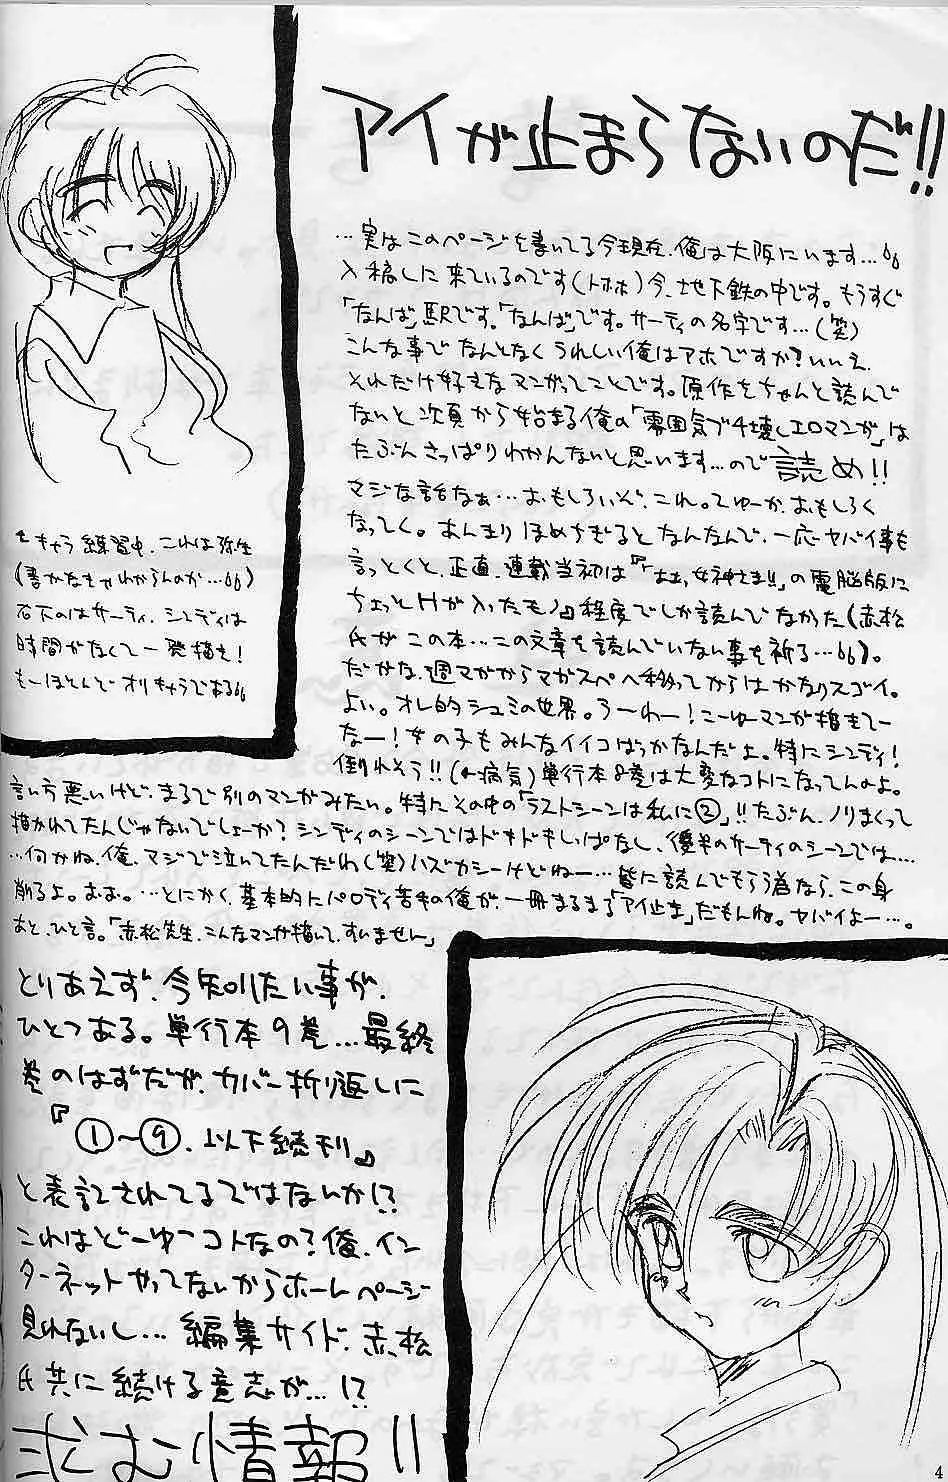 アイが止まらないのだ!!
…実はこのページを書いてる今現在、俺は大阪にいます…
入稿しに来ているのです(トホホ)今、地下鉄の中です。もうすぐ
「なんば」駅です。「なんば」です。サーティの名字です…(笑)
こんな事でなんとなくうれしい俺はアホですか?いいえ
それだけ好きなマンガってことです。原作をちゃんと読んで
ないと次頁から始まる俺の「雰囲気ブチ壊しエロマンガ」は
たぶんさっぱりわかんないと思います…ので読め!!
マジな話なぁ…おもしろいぞ、これ。てゆーか、おもしろく
なってく。あんまりほめちぎるとなんなんで、一応ヤバイ事も
言っとくと、正直、連載当初は『ああっ女神さまっ!!』の電脳版に
ちょっとHが入ったモノ』程度でしか読んでなかった(赤松
氏がこの本…この文章を読んでいない事を祈る…)。
だがな、週マガからマガスペへ移ってからはかなりスゴイ。
よい。オレ的シュミの世界。うーわー!こーゆーマンガ描きてー
なー!女の子もみんなイイコばっかなんだよ。特にシンディ!
倒れそう!!(←病気)単行本8巻は大変なコトになってんのよ。
言い方悪いけど、まるで別のマンガみたい。特にその中の「ラストシーンは私に②」!!たぶん、ノリまくって
描かれてたんじゃないでしょーか?シンディのシーンではドキドキしっぱなし、後半のサーティのシーンでは…
…何かね、俺、マジで泣いてたんだわ(笑)ハズカシーけどねー…皆に読んでもらう為なら、この身
削るよ。おお。…とにかく、基本的にパロディ苦手の俺が、一冊まるまる「アイ止ま」だもんね。ヤバイよー…。
あと、ひと言。「赤松先生、こんなマンガ描いて、すいません」
もキャラ練習中、これは弥生
(書かなきゃわからんのか…)
右下のはサーティ、シンディは
時間がなくて一発描き!
もーほとんどオリキャラである
とりあえず、今知りたい事が、
ひとつある。単行本9巻…最終
巻のはずだが、カバー折り返しに
『①〜⑨、以下続刊』
と表記されてるではないか!?
これはどーゆーコトなの?俺、イン
ターネットやってないからホームページ
見れないし…編集サイド、赤松
氏共に続ける意志が…!?
求む情報!!
4